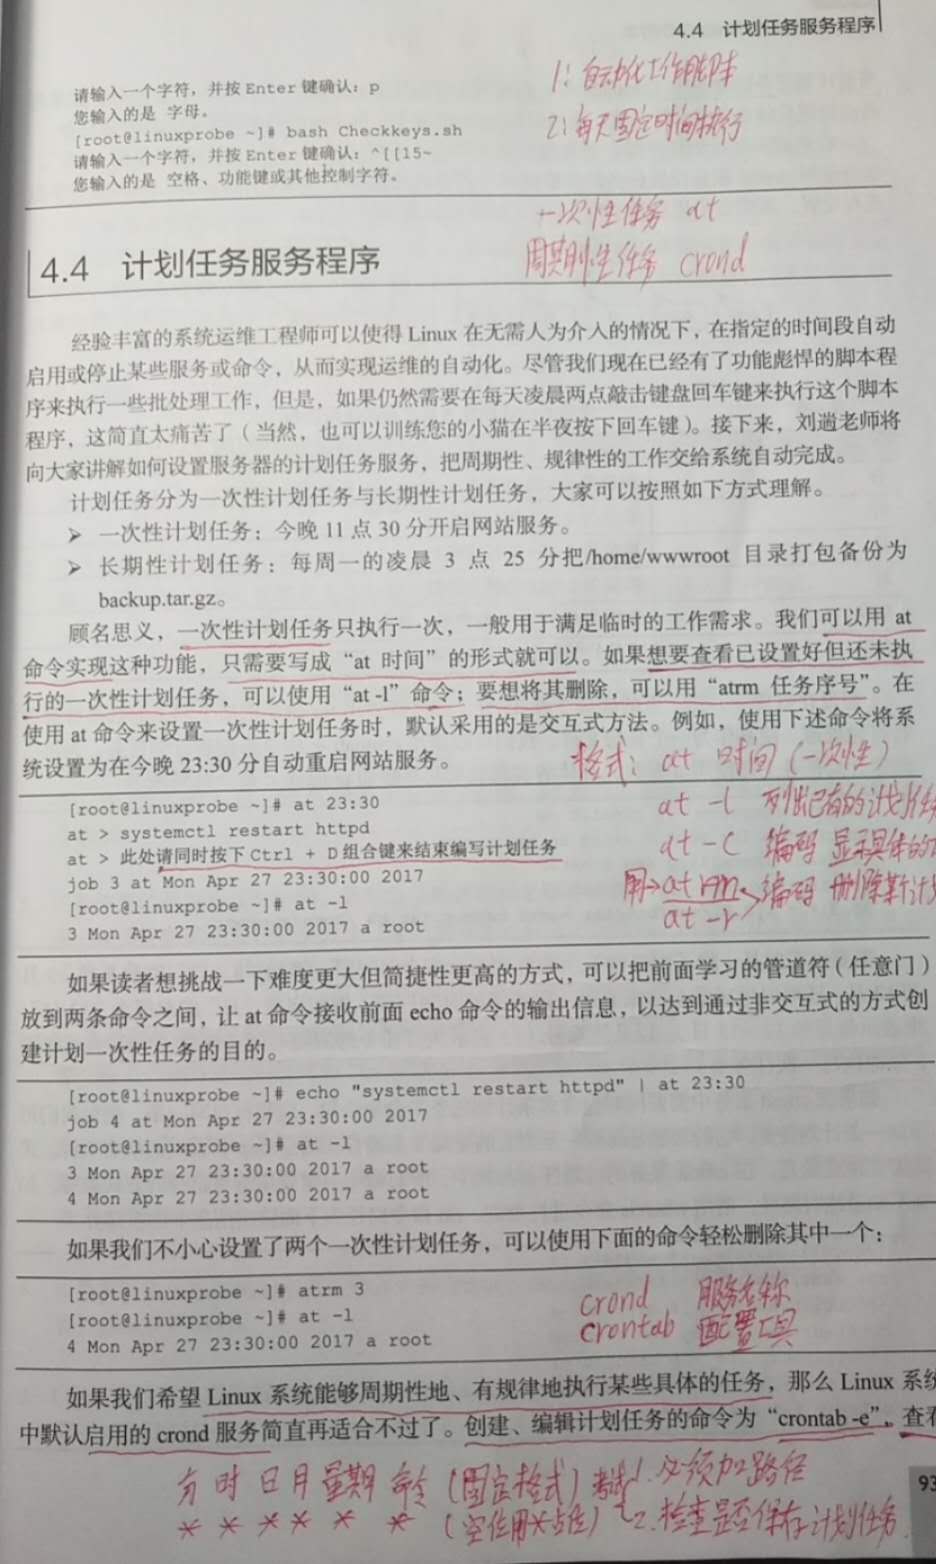 4.4 计划任务服务程序
1: 自动化工作脚本
请输入一个字符，并按 Enter 键确认：p
您输入的是 字母。
2: 每天固定时间执行
[root@linuxprobe ~]# bash Checkkeys.sh
请输入一个字符，并按 Enter 键确认：^[[15~
您输入的是 空格、功能键或其他控制字符。
一次性任务 at
周期性任务 crond
4.4 计划任务服务程序
经验丰富的系统运维工程师可以使得 Linux 在无需人为介入的情况下，在指定的时间段自动
启用或停止某些服务或命令，从而实现运维的自动化。尽管我们现在已经有了功能彪悍的脚本程
序来执行一些批处理工作，但是，如果仍然需要在每天凌晨两点敲击键盘回车键来执行这个脚本
程序，这简直太痛苦了（当然，也可以训练您的小猫在半夜按下回车键）。接下来，刘遄老师将
向大家讲解如何设置服务器的计划任务服务，把周期性、规律性的工作交给系统自动完成。
计划任务分为一次性计划任务与长期性计划任务，大家可以按照如下方式理解。
➢ 一次性计划任务：今晚 11 点 30 分开启网站服务。
➢ 长期性计划任务：每周一的凌晨 3 点 25 分把/home/wwwroot 目录打包备份为
backup.tar.gz。
顾名思义，一次性计划任务只执行一次，一般用于满足临时的工作需求。我们可以用 at
命令实现这种功能，只需要写成“at 时间”的形式就可以。如果想要查看已设置好但还未执
行的一次性计划任务，可以使用“at -l”命令；要想将其删除，可以用“atrm 任务序号”。在
使用 at 命令来设置一次性计划任务时，默认采用的是交互式方法。例如，使用下述命令将系
统设置为在今晚 23:30 分自动重启网站服务。
格式：at 时间（一次性）
[root@linuxprobe ~]# at 23:30
at -l 列出已有的计划任务
at > systemctl restart httpd
at > 此处请同时按下 Ctrl + D 组合键来结束编写计划任务
at -c 编码 显示具体的
job 3 at Mon Apr 27 23:30:00 2017
用→atrm 编码 删除某计
[root@linuxprobe ~]# at -l
at -r
3 Mon Apr 27 23:30:00 2017 a root
如果读者想挑战一下难度更大但简捷性更高的方式，可以把前面学习的管道符（任意门）
放到两条命令之间，让 at 命令接收前面 echo 命令的输出信息，以达到通过非交互式的方式创
建计划一次性任务的目的。
[root@linuxprobe ~]# echo "systemctl restart httpd" | at 23:30
job 4 at Mon Apr 27 23:30:00 2017
[root@linuxprobe ~]# at -l
3 Mon Apr 27 23:30:00 2017 a root
4 Mon Apr 27 23:30:00 2017 a root
如果我们不小心设置了两个一次性计划任务，可以使用下面的命令轻松删除其中一个：
[root@linuxprobe ~]# atrm 3
[root@linuxprobe ~]# at -l
4 Mon Apr 27 23:30:00 2017 a root
crond 服务名称
crontab 配置工具
如果我们希望 Linux 系统能够周期性地、有规律地执行某些具体的任务，那么 Linux 系统
中默认启用的 crond 服务简直再适合不过了。创建、编辑计划任务的命令为“crontab -e”，查看
分 时 日 月 星期 命令（固定格式）考试 1.必须加路径
* * * * * *（空位用*占位） 2.检查是否保存计划任务
93